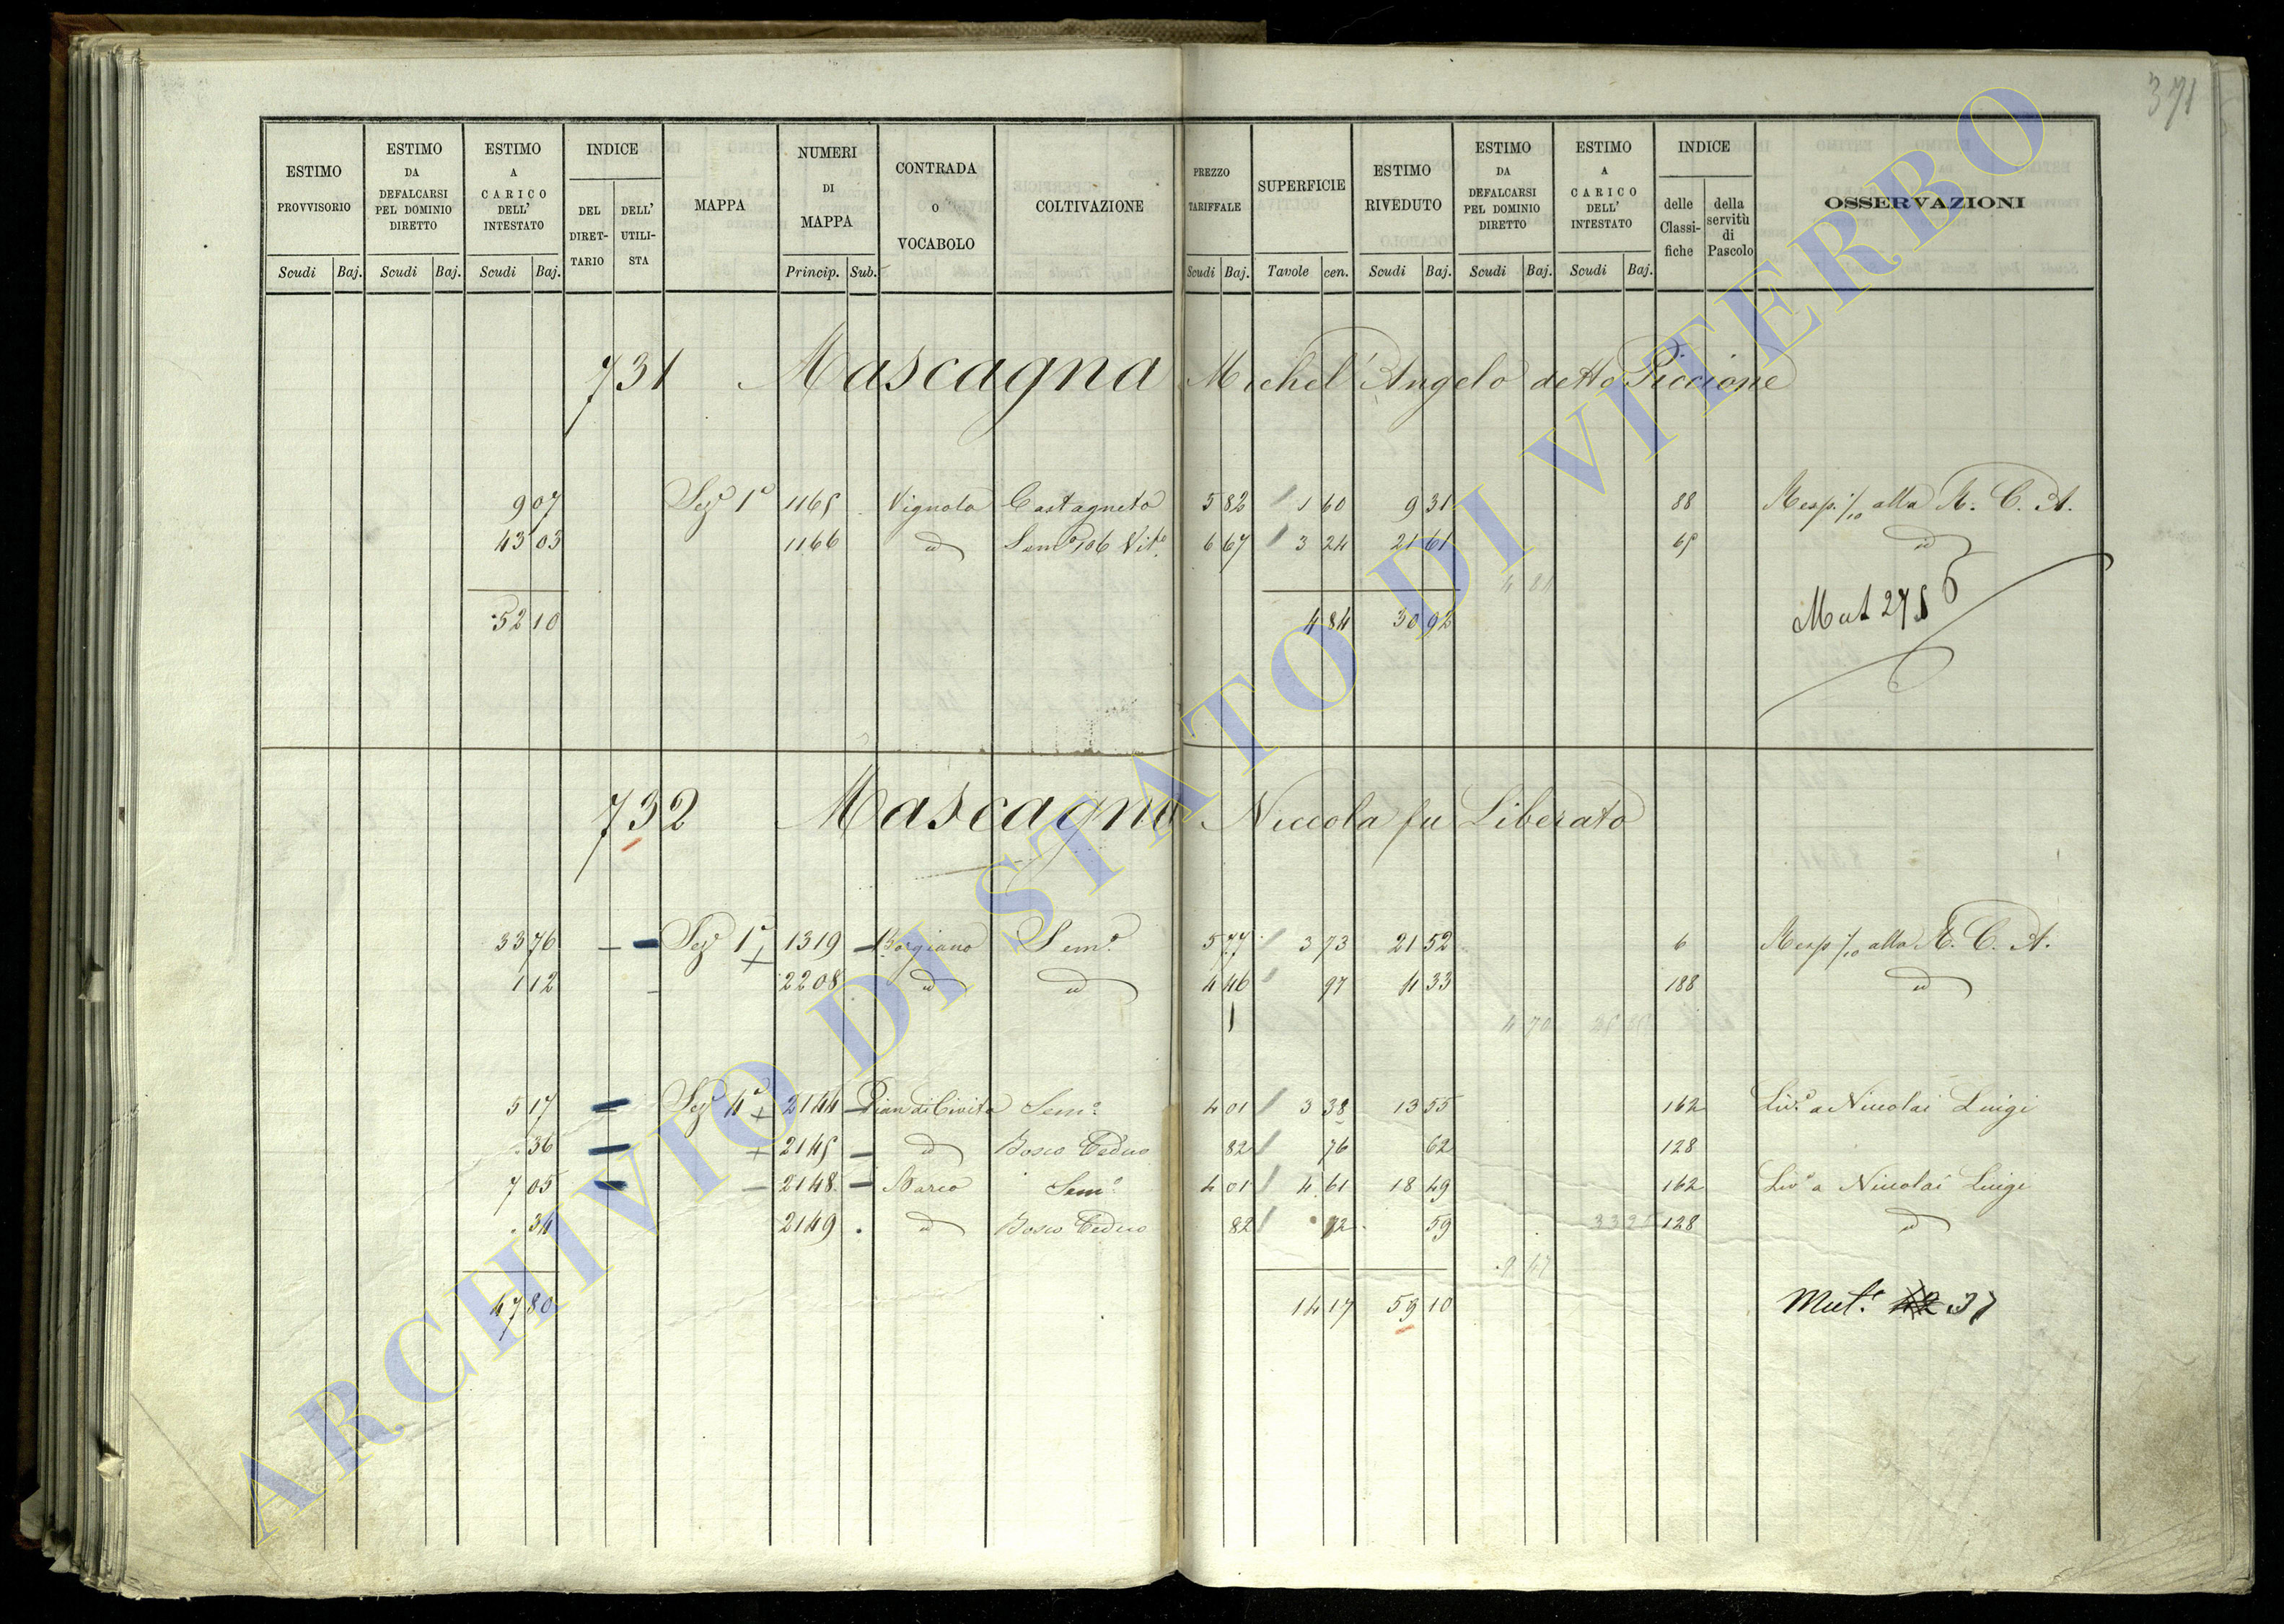 371
ESTIMO PROVVISORIO
ESTIMO DA DEFALCARSI PEL DOMINIO DIRETTO
ESTIMO A CARICO DELL' INTESTATO
INDICE
DEL DIRET-TARIO
DELL' UTILI-STA
MAPPA
NUMERI DI MAPPA
CONTRADA O VOCABOLO
COLTIVAZIONE
PREZZO TARIFFALE
SUPERFICIE
ESTIMO RIVEDUTO
ESTIMO DA DEFALCARSI PEL DOMINIO DIRETTO
ESTIMO A CARICO DELL' INTESTATO
INDICE
delle Classi-fiche
della servitù di Pascolo
OSSERVAZIONI
Scudi Baj. Scudi Baj. Scudi Baj. Princip. Sub. Scudi Baj. Tavole cen. Scudi Baj. Scudi Baj. Scudi Baj.
731 Mascagna Michel'Angelo detto Piccione
9 07 Sez.e 1a 1165 Vignolo Castagneto 5 82 1 60 9 31 88 Resp. 1/10 alla R. C. A.
43 03 1166 id Vit.o 6 67 3 24 21 61 65 id
52 10 4 84 30 92 Mut 275
732 Mascagna Niccola fu Liberato
33 76 Sez.e 1a 1319 Borgiano Sem.o 5 77 3 73 21 52 6 Resp 1/10 alla R. C. A.
1 12 2208 id id 4 46 97 4 33 188 id
4 70
5 17 Sez.e 4a 2144 Pian di Civita Sem.o 4 01 3 38 13 55 162 Liv.o a Niccolai Luigi
36 2145 id Bosco Ceduo 82 76 62 128
7 05 2148 Barco Sem.o 4 01 4 61 18 49 162 Liv.o a Niccolai Luigi
34 2149 id Bosco Ceduo 82 72 59 128 id
47 80 14 17 59 10 Mut.e 37
ARCHIVIO DI STATO DI VITERBO